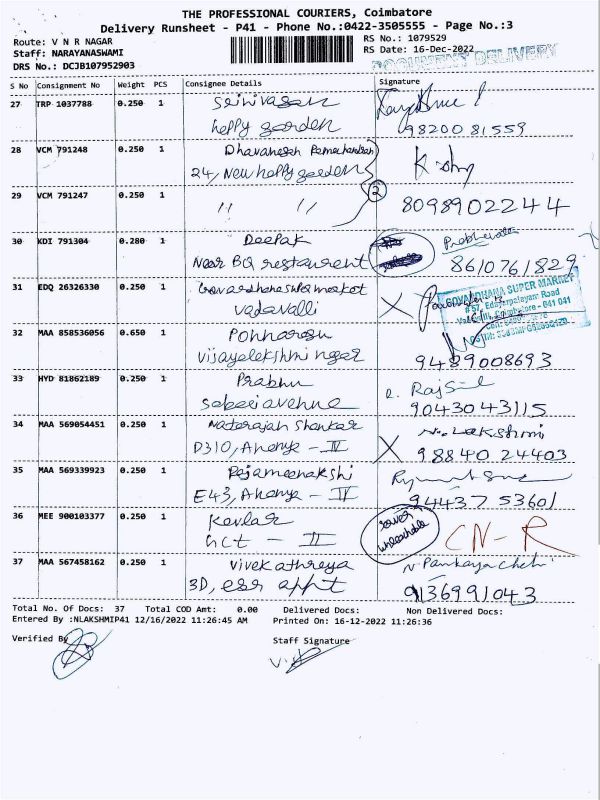 THE PROFESSIONAL COURIERS, Coimbatore
Delivery Runsheet - P41 - Phone No.:0422-3505555 - Page No.:3
Route: V N R NAGAR
RS No.: 1079529
Staff: NARAYANASWAMI
RS Date: 16-Dec-2022
DOCUMENT DELIVERY
DRS No.: DCJB107952903
S No Consignment No Weight PCS Consignee Details Signature
27 TRP 1037788 0.250 1 Srinivasan
happy garden 98200 81559
28 VCM 791248 0.250 1 Dhavanesh Ramachandran
24, New happy garden
29 VCM 791247 0.250 1 " " 2 8098902244
30 KDI 791304 0.280 1 Deepak
Near BQ restaurent 8610761829
31 EDQ 26326330 0.250 1 Govardhana super market
GOVARDHANA SUPER MARKET
vadavalli X
# 57, Edayarpalayam Road
Vadavalli, Coimbatore - 641 041
32 MAA 858536056 0.650 1 Ponnarasu
vijayalakshmi nagar 9489008693
33 HYD 81862189 0.250 1 Prabhu
sabari avenue 9043043115
34 MAA 569054451 0.250 1 Natarajan Shankar
D310, Ananya - IV X 98840 24403
35 MAA 569339923 0.250 1 Rajameenakshi
E43, Ananya - IV 94437 53601
36 MEE 900103377 0.250 1 Kavlar
GCT - II CN-R
37 MAA 567458162 0.250 1 Vivek athreya
3D, esr appt 9136991043
Total No. Of Docs: 37 Total COD Amt: 0.00 Delivered Docs: Non Delivered Docs:
Entered By :NLAKSHMIP41 12/16/2022 11:26:45 AM Printed On: 16-12-2022 11:26:36
Verified By
Staff Signature